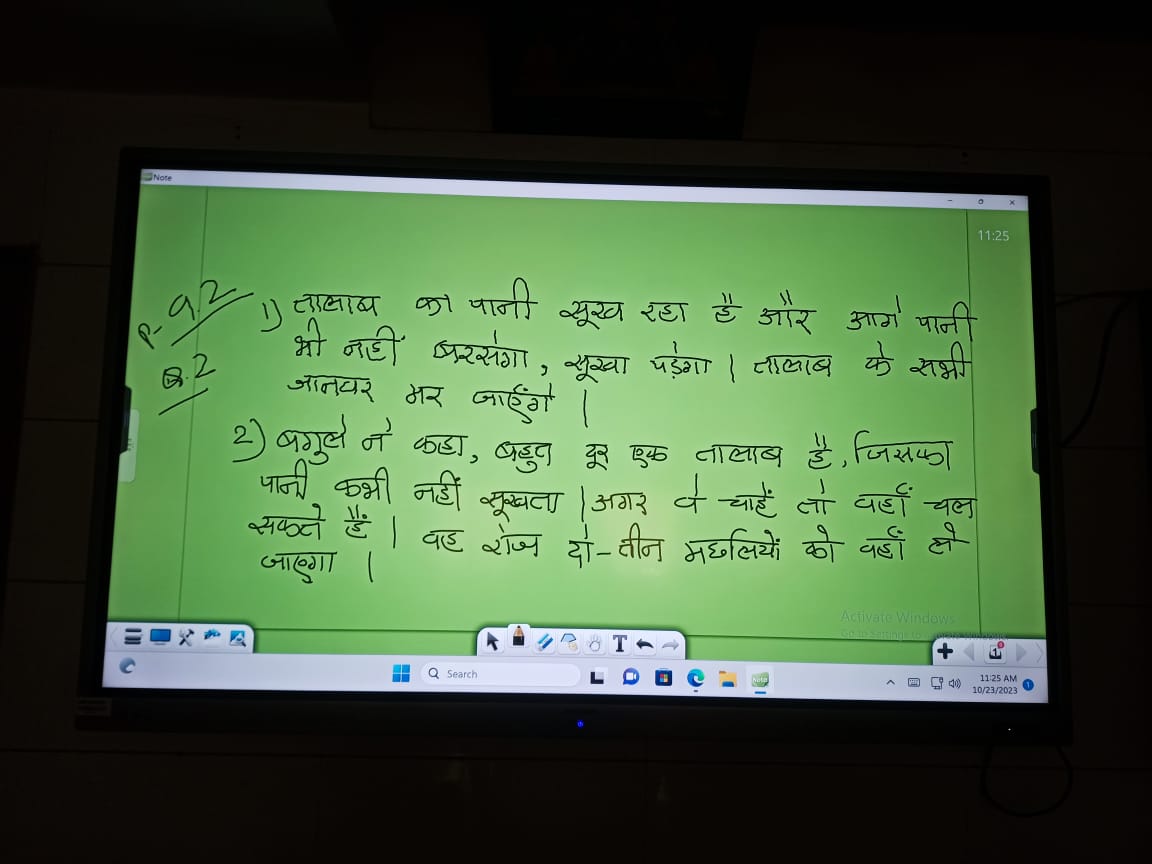 Note
11:25
P-92
Q.2
1) तालाब का पानी सूख रहा है और आगे पानी
भी नहीं बरसेगा, सूखा पड़ेगा | तालाब के सभी
जानवर मर जाएँगे |
2) बगुले ने कहा, बहुत दूर एक तालाब है, जिसका
पानी कभी नहीं सूखता | अगर वे चाहें तो वहाँ चल
सकते हैं | वह रोज दो-तीन मछलियों को वहाँ ले
जाएगा |
Activate Windows
Go to Settings to activate Windows.
T
Search
Note
11:25 AM
10/23/2023
1